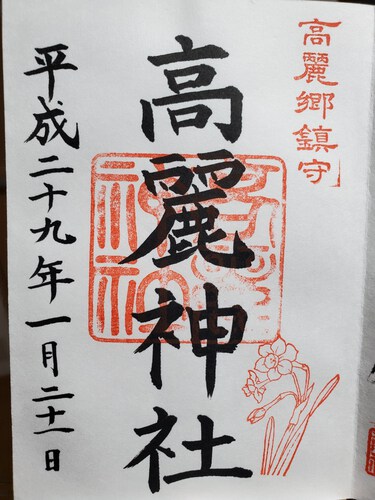 高麗郷鎮守
高麗神社
平成二十九年一月二十一日